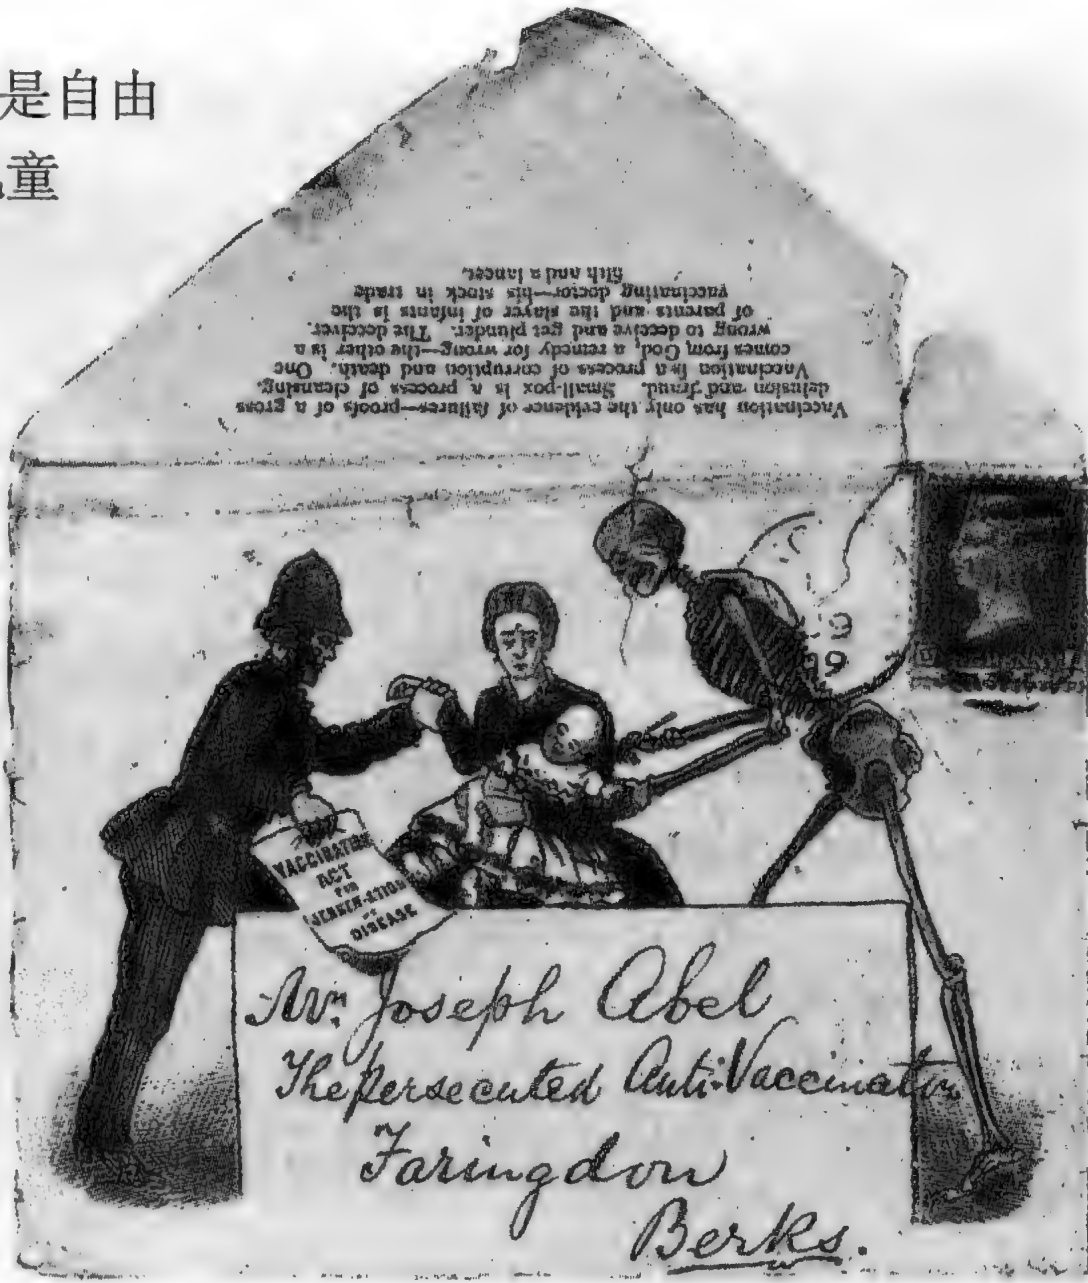 是自由
童
Vaccination has only the evidence of failures—proofs of a gross
delusion and fraud. Small-pox is a process of cleansing,
Vaccination is a process of corruption and death. One
comes from God, a remedy for wrong—the other is a
wrong to deceive and get plunder. The deceiver
of parents and the slayer of infants is the
vaccinating doctor—his stock in trade
filth and a lancet.
VACCINATION
ACT
FOR
JENNER-ATION
OF
DISEASE
Mr. Joseph Abel
The persecuted Anti-Vaccinator
Faringdon
Berks.